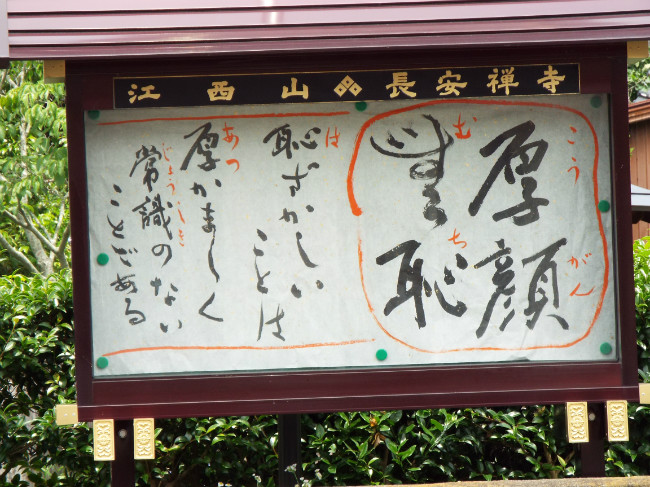 江西山 長安禅寺
厚顔
こうがん
無恥
むち
恥ずかしい
は
ことは
厚かましく
あつ
常識のない
じょうしき
ことである